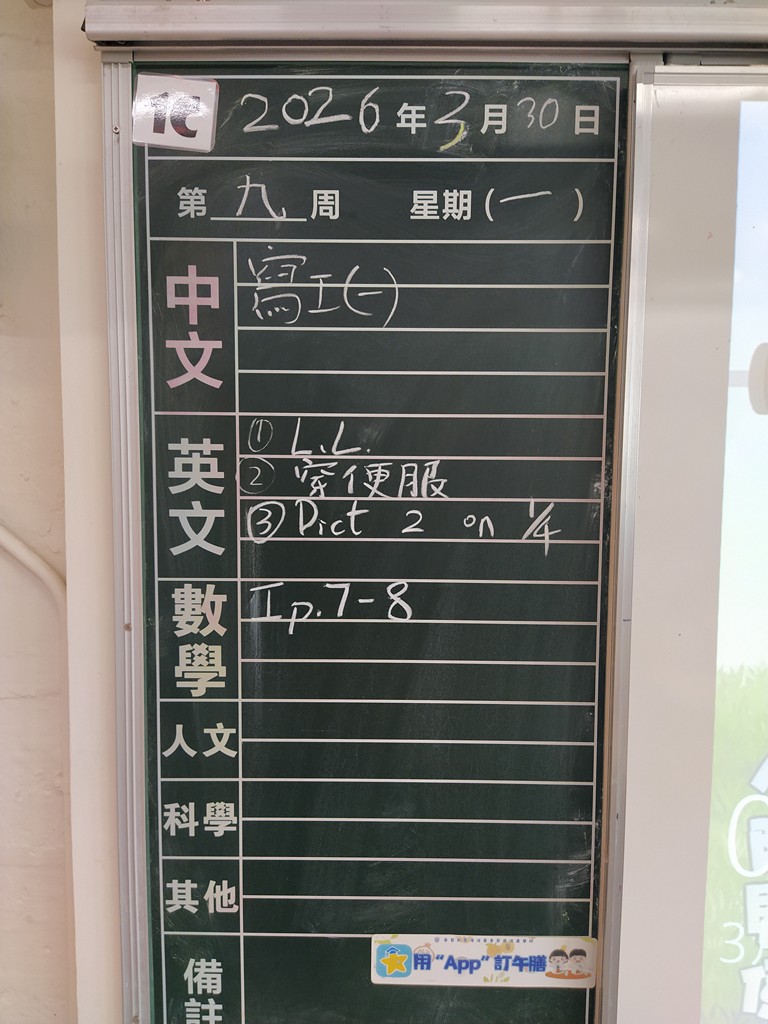 1C 2026年3月30日
第九周 星期(一)
中文
寫工(一)
英文
① L.L.
② 穿便服
③ Dict 2 on 1/4
數學
I p.7-8
人文
科學
其他
備註
用“App”訂午膳
3